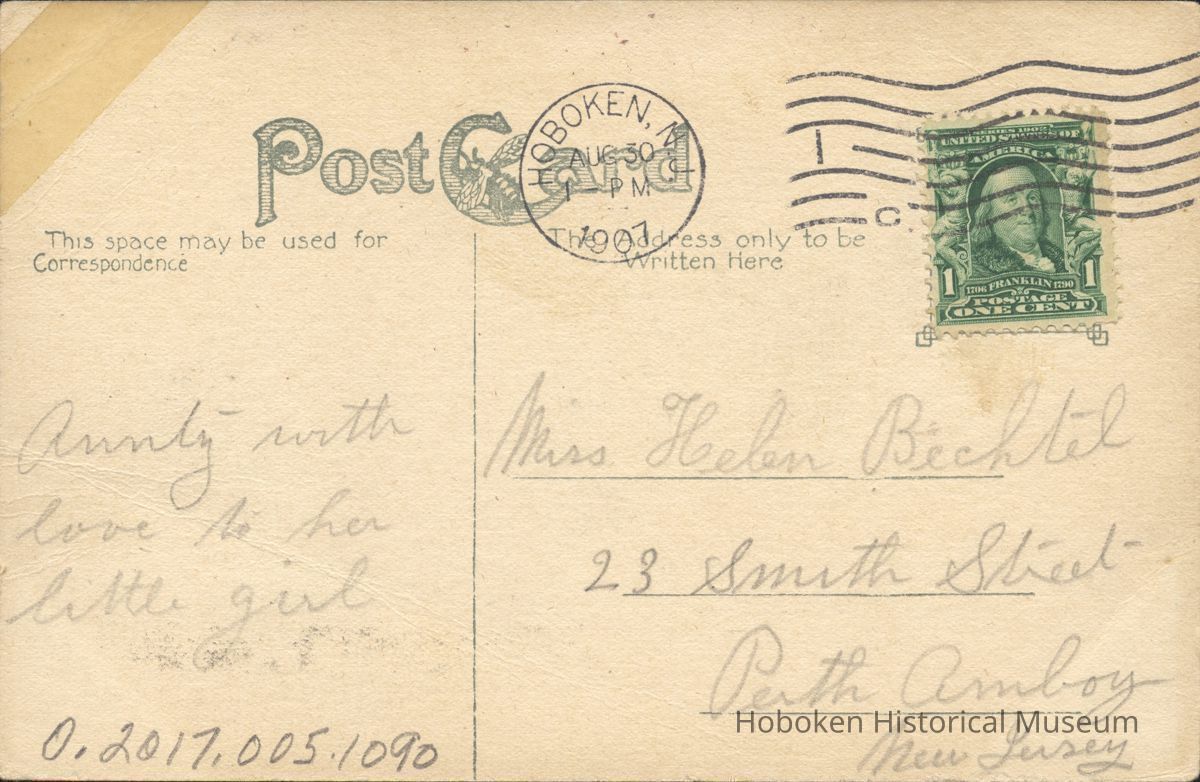 Post Card
HOBOKEN, N.J.
AUG 30
1 - PM
1907
1
C
SERIES 1902
UNITED STATES OF
AMERICA
1 1
1706 FRANKLIN 1790
POSTAGE
ONE CENT
This space may be used for
Correspondence
The Address only to be
Written Here
Aunty with
love to her
little girl
0.2017.005.1090
Miss Helen Bechtel
23 Smith Street
Perth Amboy
New Jersey
Hoboken Historical Museum